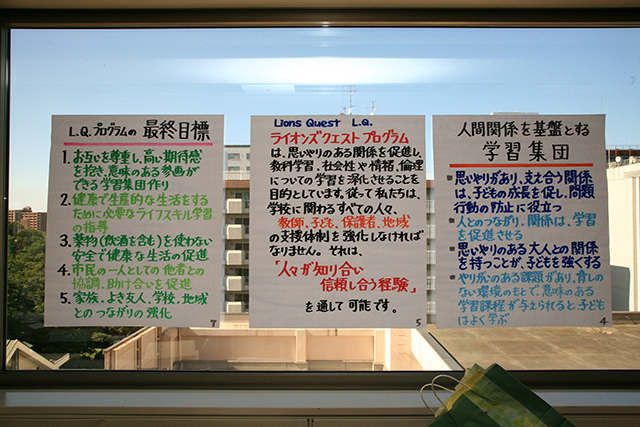 L.Q.プログラムの 最終目標
1. お互いを尊重し、高い期待感
を抱き、意味のある参画が
できる学習集団作り
2. 健康で生産的な生活をする
ために必要なライフスキル学習
の指導
3. 薬物(飲酒を含む)を使わない
安全で健康な生活の促進
4. 市民の一人としての他者との
協調、助け合いを促進
5. 家族、よき友人、学校、地域
とのつながりの強化
7
Lions Quest L.Q.
ライオンズクエストプログラム
は、思いやりのある関係を促進し、
教科学習、社会性や情緒、倫理
についての学習を深化させることを
目的としています。従って私たちは、
学校に関わるすべての人々、
教師、子ども、保護者、地域
の支援体制を強化しなければ
なりません。それは、
「人々が知り合い
信頼し合う経験」
を通して可能です。
5
人間関係を基盤とする
学習集団
思いやりがあり、支え合う関係
は、子どもの成長を促し、問題
行動の防止に役立つ
人とのつながり、関係は、学習
を促進させる
思いやりのある大人との関係
を持つことが、子どもを強くする
やりがいのある課題があり、脅しの
ない環境のもとで、意味のある
学習課程が与えられると子ども
はよく学ぶ
4